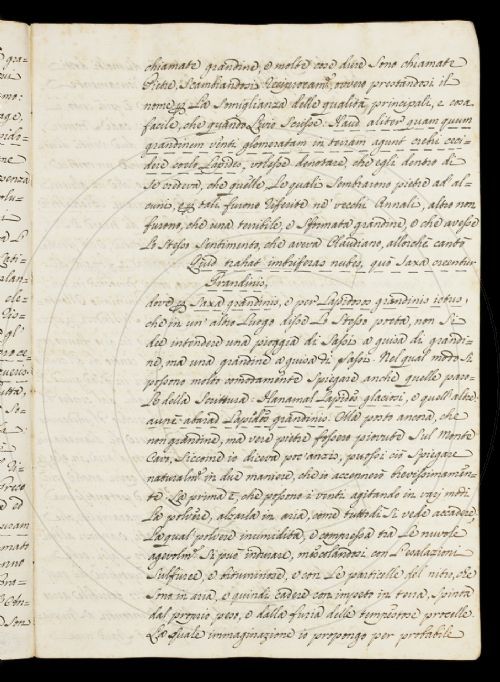 chiamate grandine, e molte cose dure sono chiamate
Pietre, Scambiandosi reciprocam.e, ovvero prestandosi il
nome p la somiglianza delle qualità principali, e cosa
facile, che quando Livio scrisse: Haud aliter quam quum
grandinem venti glomeratam in terram agunt crebri ceci-
dere coelo Lapides, volesse denotare, che egli dentro di
se credeva, che quelle, le quali sembravano pietre ad al-
cuni, e p tali furono riferite ne' vecchi Annali, altro non
furono, che una terribile, e sformata grandine, e che avesse
lo stesso sentimento, che aveva Claudiano, allorchè cantò
Quid trahat imbriferas nubes, quo Saxa creentur
Grandinis,
dove p Saxa grandinis, e per Lapidosos grandinis ictus,
che in un' altro luogo disse lo stesso poeta, non si
dee intendere una pioggia di sassi a guisa di grandi-
ne, ma una grandine a guisa di sassi. Nel qual modo si
possono molto comodamente spiegare anche quelle paro-
le della Scrittura Lapides glaciei, e quell' altre
Lapides grandinis. Ma posto ancora, che
non grandine, ma vere pietre fossero piovute sul Monte
Cavo, siccome io diceva poc'anzi, puossi ciò spiegare
naturalm.e in due maniere, che io accennerò brevissimamen-
te. La prima è, che possono i venti agitando in varj modi
la polvere, alzarla in aria, come tuttodì si vede accadere,
la qual polvere inumidita, e compressa tra le nuvole
agevolm.e si può indurare, mescolandosi con l'esalazioni
sulfuree, e bituminose, e con le particelle del nitro, che
sono in aria, e quindi cadere con impeto in terra, spinta
dal proprio peso, e dalla furia delle tempestose procelle.
La quale immaginazione io propongo per probabile